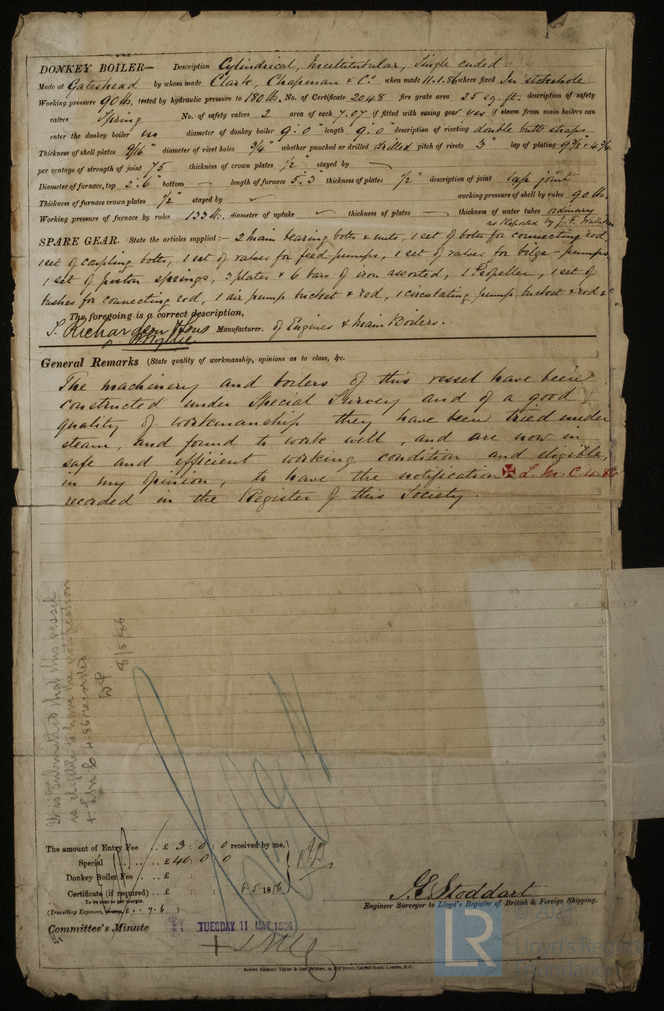 DONKEY BOILER— Description Cylindrical, Multitubular, Single ended
Made at Gateshead by whom made Clark, Chapman & Co. when made 11.1.86 where fixed In stokehole
Working pressure 90 lb. tested by hydraulic pressure to 180 lb. No. of Certificate 2048 fire grate area 25 sq. ft. description of safety
valves Spring No. of safety valves 2 area of each 7.07 if fitted with easing gear yes if steam from main boilers can
enter the donkey boiler no diameter of donkey boiler 9'.0" length 9'.0" description of riveting double butt straps
Thickness of shell plates 9/16" diameter of rivet holes 3/4" whether punched or drilled drilled pitch of rivets 3" lap of plating
per centage of strength of joint 75 thickness of crown plates 1/2" stayed by —
Diameter of furnace, top 2'.6" bottom — length of furnace 5'.3" thickness of plates 1/2" description of joint lap joint
Thickness of furnace crown plates 1/2" stayed by working pressure of shell by rules 90 lb.
Working pressure of furnace by rules 133 lb. diameter of uptake thickness of plates — thickness of water tubes ordinary
as Reported by J. F.
SPARE GEAR. State the articles supplied:— 2 Main bearing bolts & nuts, 1 set of bolts for connecting rod,
1 set of coupling bolts, 1 set of valves for feed pumps, 1 set of valves for bilge pumps
1 set of piston springs, 3 plates & 6 bars of iron assorted, 1 Propeller, 1 set of
bushes for connecting rod, 1 air pump bucket & rod, 1 circulating pump bucket & rod &c
The foregoing is a correct description,
T. Richardson & Sons Manufacturer. of Engines & Main Boilers.
General Remarks (State quality of workmanship, opinions as to class, &c.
The machinery and boilers of this vessel have been
constructed under Special Survey and of a good
quality of workmanship they have been tried under
steam, and found to work well, and are now in
safe and efficient working condition and eligible,
in my opinion, to have the notification ✠ L.M.C. 4.86
recorded in the Register of this Society.
It is submitted that this vessel
is eligible to have the notification
+ LMC 4.86 recorded
8/5/86
The amount of Entry Fee .. £ 3 : 0 : 0 received by me,
Special .. .. £ 40 : 0 : 0
Donkey Boiler Fee .. £ : :
Certificate (if required) .. £ : : 6.5 1886
To be sent as per margin.
(Travelling Expenses, if any, £ .. 7.6 )
J. E. Stoddart
Engineer Surveyor to Lloyd's Register of British & Foreign Shipping.
Committee's Minute TUESDAY 11 MAY 1886
+ LMC
LR
Lloyd's Register
Foundation